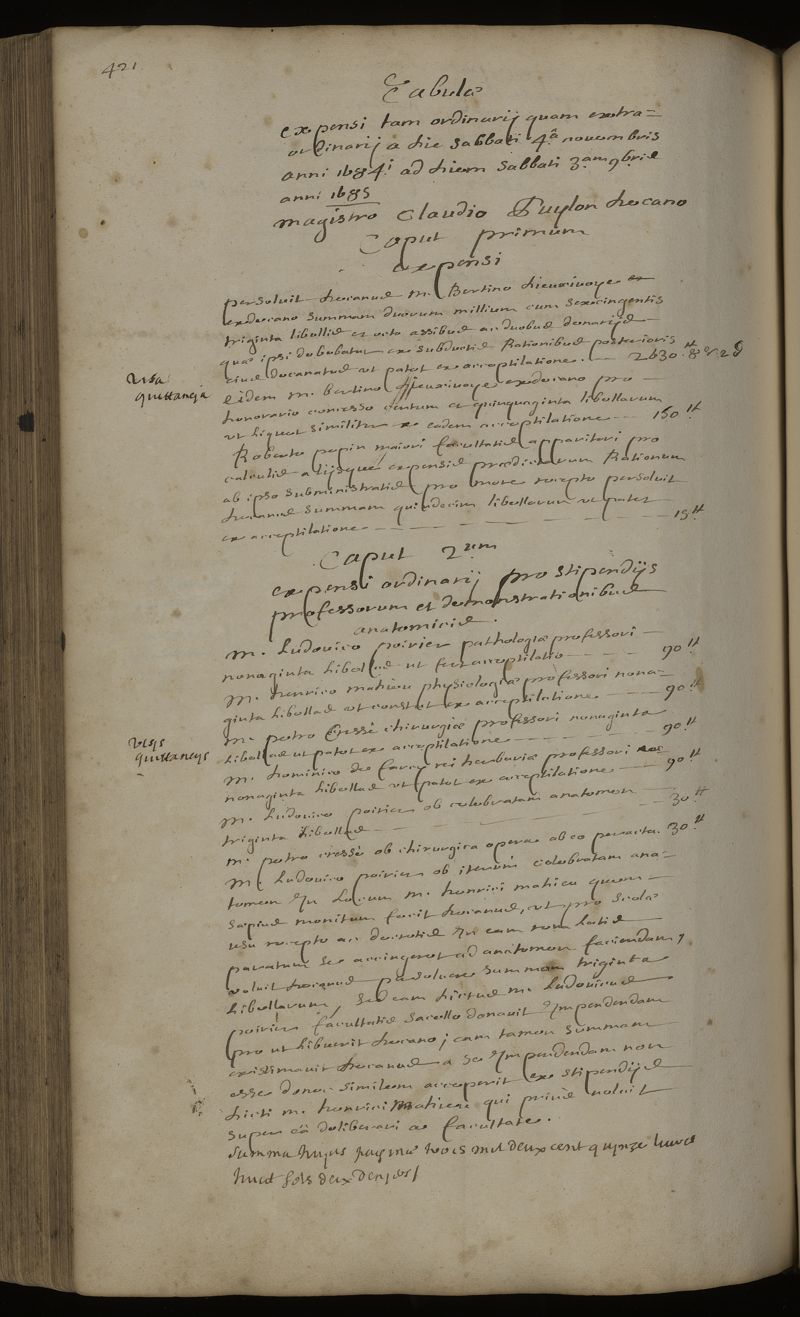 421
Tabula
expensi tam ordinarij quam extra=
ordinarij a die sabbati 4ª novembris
anni 1684i ad diem sabbati 3am 9bris
anni 1685
magistro Claudio Puylon decano
Caput primum
expensi
persoluit decanus M. Bertino Dieuxivoye ex
exdecano summam duorum millium cum sexcingentis
triginta libellis et octo assibus ac duobus denarijs
quae ipsi debebatur ex subductis Rationibus posterioris
eius decanatus ut patet ex acceptilatione. — 2630 ₶ 8 s 2 d
visa
quittancia
eidem m. bertino Dieuxivoye exdecano pro
honorario concesso centum et quinquaginta libellarum
ut liquet similiter ex eadem acceptilatione — 150 ₶
Roberto pepin maiori facultatis apparitori pro
calculis alijsque expensis praedictarum Rationum
ab ipso subministratis pro more recepto persoluit
decanus summam quindecim libellarum ut patet
ex acceptilatione — 15 ₶
Caput 2um
expensi ordinarij pro stipendijs
professorum et demonstrationibus
anatomicis.
m. Ludovico poirier pathologiae professori
nonaginta libellas ut fert acceptilatio — 90 ₶
M. henrico mahieu physiologiae professori nona=
ginta libellas ut constat ex acceptilatione. — 90 ₶
visis
quittancijs
m. petro Cressé chirurgiae professori nonaginta
libellas ut patet ex acceptilatione — 90 ₶
M. dominico de farcy rei herbariae professori
nonaginta libellas ut patet ex acceptilatione — 90 ₶
M. Ludovico poirier ob celebratam anatomen
triginta libellas — 30 ₶
m. petro cressé ob chirurgica opera ab eo peracta. 30 ₶
M. Ludovico poirier ob iterum celebratam ana=
tomen In Locum m. henrici mahieu quem
saepius monitum fecit decanus, ut pro scolae
usu recepto ac decretis In eam rem latis
paratum se accingeret ad anatomen faciendam,
voluit decanus persoluere summam triginta
libellarum, sed eam dictus m. Ludovicus
poirier facultatis sacello donavit Impendendam
pro ut libuerit decano; eam tamen summam
existimavit decanus a se Impendendam non
esse donec similem acceperit ex stipendijs
dicti m. henrici Mahieu qui prius voluit
super eâ deliberari a facultate.
summa hujus paginae trois mil deux cent quinze livres
huict sols deux deniers/